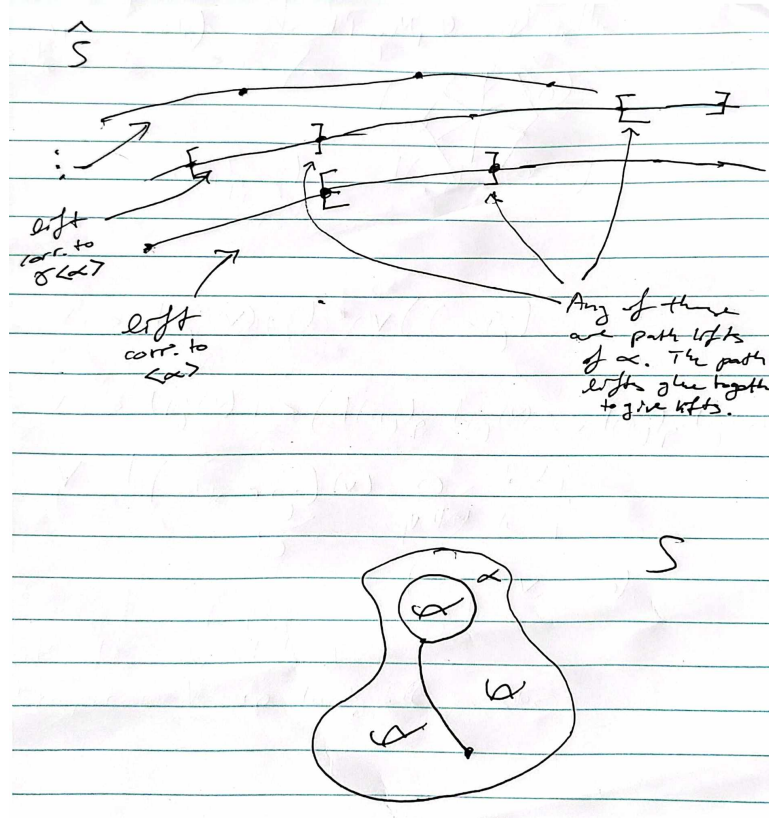 Ŝ
⋮
lift
corr. to
γ<α>
lift
corr. to
<α>
Any of these
are path lifts
of α. The path
lifts glue together
to give lifts.
S
α